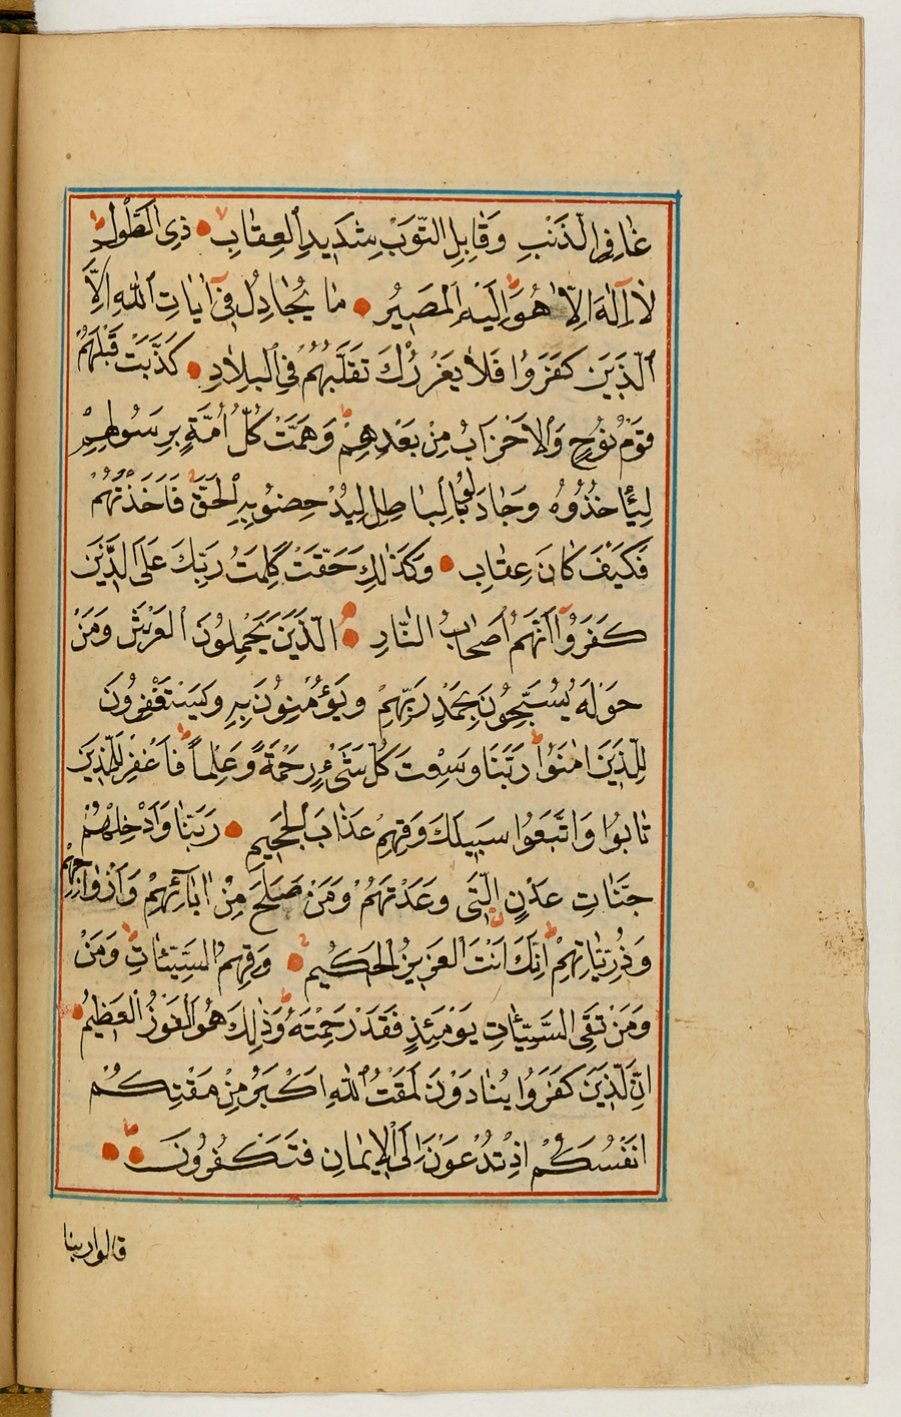 غَافِرِ الذَّنْبِ وَقَابِلِ التَّوْبِ شَدِيدِ الْعِقَابِ ذِي الطَّوْلِ
لَا إِلٰهَ إِلَّا هُوَ إِلَيْهِ الْمَصِيرُ مَا يُجَادِلُ فِي اٰيَاتِ اللّٰهِ إِلَّا
الَّذِينَ كَفَرُوا فَلَا يَغْرُرْكَ تَقَلُّبُهُمْ فِي الْبِلَادِ كَذَّبَتْ قَبْلَهُمْ
قَوْمُ نُوحٍ وَالْاَحْزَابُ مِنْ بَعْدِهِمْ وَهَمَّتْ كُلُّ اُمَّةٍ بِرَسُولِهِمْ
لِيَأْخُذُوهُ وَجَادَلُوا بِالْبَاطِلِ لِيُدْحِضُوا بِهِ الْحَقَّ فَاَخَذْتُهُمْ
فَكَيْفَ كَانَ عِقَابِ وَكَذٰلِكَ حَقَّتْ كَلِمَتُ رَبِّكَ عَلَى الَّذِينَ
كَفَرُوا اَنَّهُمْ اَصْحَابُ النَّارِ الَّذِينَ يَحْمِلُونَ الْعَرْشَ وَمَنْ
حَوْلَهُ يُسَبِّحُونَ بِحَمْدِ رَبِّهِمْ وَيُؤْمِنُونَ بِهِ وَيَسْتَغْفِرُونَ
لِلَّذِينَ اٰمَنُوا رَبَّنَا وَسِعْتَ كُلَّ شَيْءٍ رَحْمَةً وَعِلْمًا فَاغْفِرْ لِلَّذِينَ
تَابُوا وَاتَّبَعُوا سَبِيلَكَ وَقِهِمْ عَذَابَ الْجَحِيمِ رَبَّنَا وَاَدْخِلْهُمْ
جَنَّاتِ عَدْنٍ الَّتِي وَعَدْتَهُمْ وَمَنْ صَلَحَ مِنْ اٰبَائِهِمْ وَاَزْوَاجِهِمْ
وَذُرِّيَّاتِهِمْ اِنَّكَ اَنْتَ الْعَزِيزُ الْحَكِيمُ وَقِهِمُ السَّيِّئَاتِ وَمَنْ
وَمَنْ تَقِي السَّيِّئَاتِ يَوْمَئِذٍ فَقَدْ رَحِمْتَهُ وَذٰلِكَ هُوَ الْفَوْزُ الْعَظِيمُ
اِنَّ الَّذِينَ كَفَرُوا يُنَادَوْنَ لَمَقْتُ اللّٰهِ اَكْبَرُ مِنْ مَقْتِكُمْ
اَنْفُسَكُمْ اِذْ تُدْعَوْنَ اِلَى الْاِيمَانِ فَتَكْفُرُونَ
قالوا ربنا